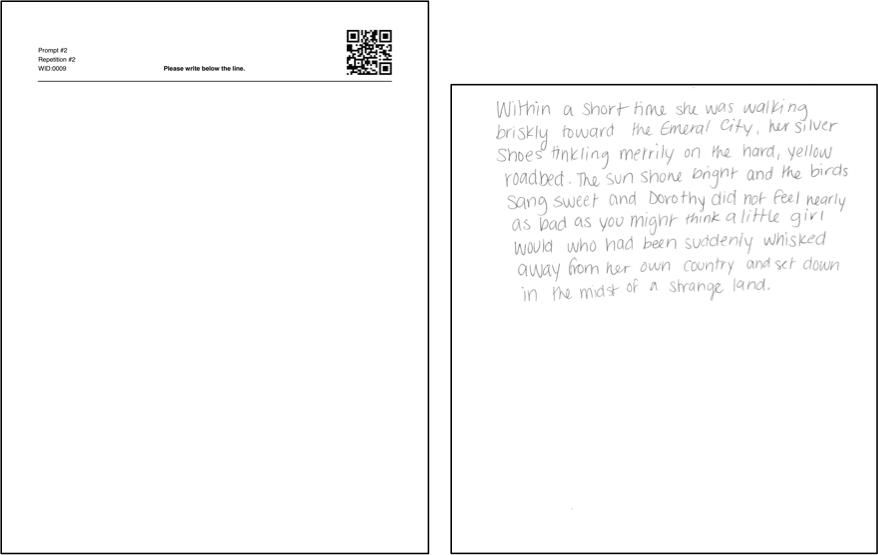 Prompt #2
Repetition #2
WID:0009
Please write below the line.
Within a short time she was walking
briskly toward the Emeral City, her silver
Shoes tinkling merrily on the hard, yellow
roadbed. The sun shone bright and the birds
sang sweet and Dorothy did not feel nearly
as bad as you might think a little girl
would who had been suddenly whisked
away from her own country and set down
in the midst of a strange land.